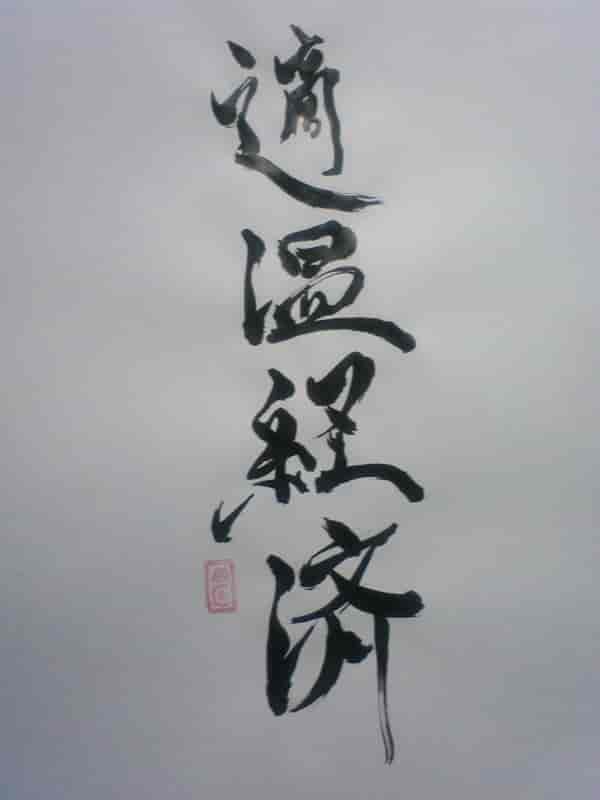 適温経済